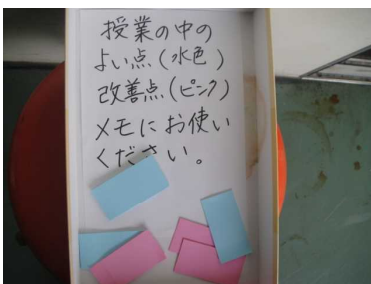 授業の中の
よい点(水色)
改善点(ピンク)
メモにお使い
ください。